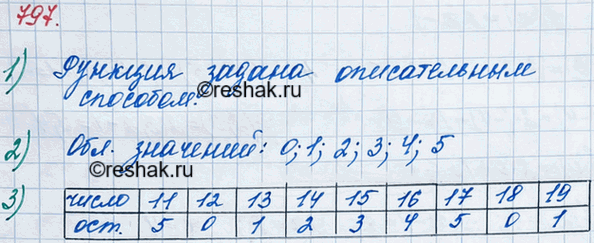 797.
1) Функция задана описательным
способом.
©reshak.ru
2) Обл. значений: 0; 1; 2; 3; 4; 5
©reshak.ru
3) число 11 12 13 14 15 16 17 18 19
ост. 5 0 1 2 3 4 5 0 1